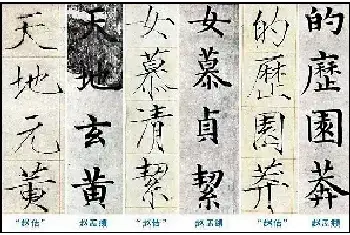 天地元黄
天地玄黄
女慕清絜
女慕貞絜
的歷園莽
的歷園莽
“赵佶” 赵孟頫 “赵佶” 赵孟頫 “赵佶” 赵孟頫